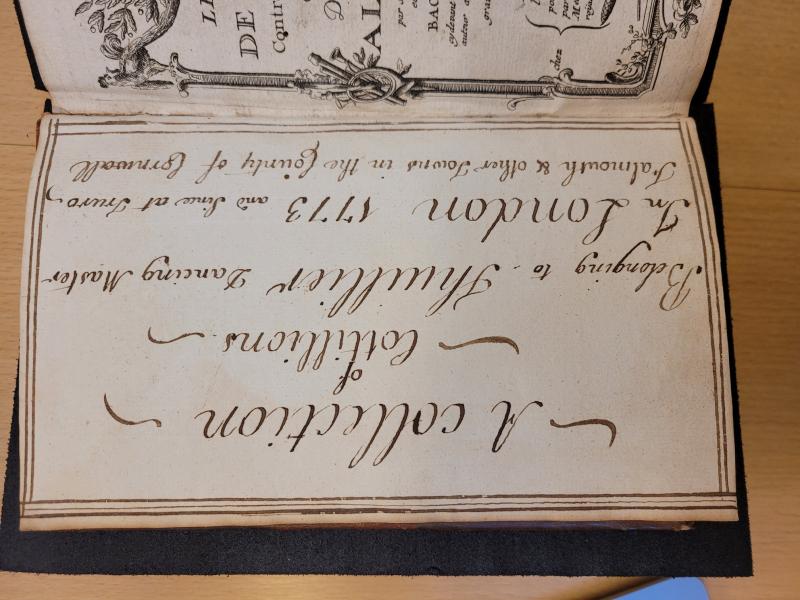 A collection
of
Cottillions
Belonging to Thuillier Dancing Master
In London 1773 and Since at Truro,
Falmouth & other Towns in the County of Cornwall
LE
DE
Contr
D
AL
par
BAC
cydevant
auteur d
grav
chez